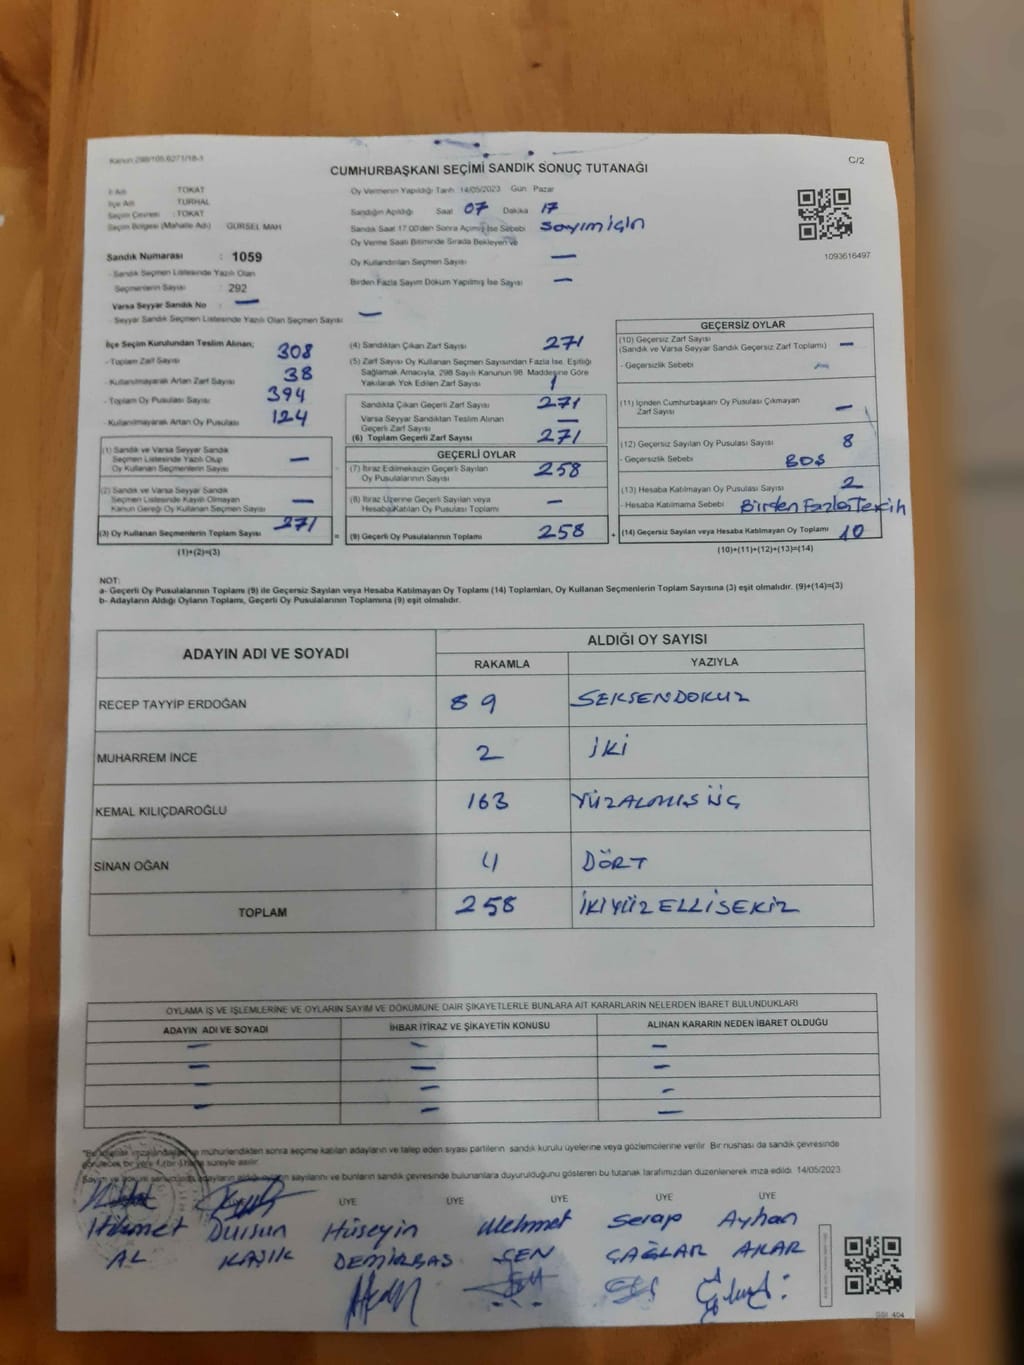 Kanun:298/105,6271/18-1
C/2
CUMHURBAŞKANI SEÇİMİ SANDIK SONUÇ TUTANAĞI
İl Adı TOKAT
İlçe Adı TURHAL
Seçim Çevresi : TOKAT
Seçim Bölgesi (Mahalle Adı) GÜRSEL MAH
Oy Vermenin Yapıldığı Tarih 14/05/2023 Gün Pazar
Sandığın Açıldığı Saat 07 Dakika 17
Sandık Saat 17.00'den Sonra Açılmış İse Sebebi Sayım için
Oy Verme Saati Bitiminde Sırada Bekleyen ve
Oy Kullandırılan Seçmen Sayısı —
Birden Fazla Sayım Döküm Yapılmış İse Sayısı —
1093616497
Sandık Numarası : 1059
- Sandık Seçmen Listesinde Yazılı Olan
Seçmenlerin Sayısı : 292
Varsa Seyyar Sandık No : —
- Seyyar Sandık Seçmen Listesinde Yazılı Olan Seçmen Sayısı : —
İlçe Seçim Kurulundan Teslim Alınan;
- Toplam Zarf Sayısı 308
- Kullanılmayarak Artan Zarf Sayısı 38
- Toplam Oy Pusulası Sayısı 394
- Kullanılmayarak Artan Oy Pusulası 124
(1) Sandık ve Varsa Seyyar Sandık
Seçmen Listesinde Yazılı Olup
Oy Kullanan Seçmenlerin Sayısı —
(2) Sandık ve Varsa Seyyar Sandık
Seçmen Listesinde Kayıtlı Olmayan
Kanun Gereği Oy Kullanan Seçmen Sayısı —
(3) Oy Kullanan Seçmenlerin Toplam Sayısı 271
(1)+(2)=(3)
(4) Sandıktan Çıkan Zarf Sayısı 271
(5) Zarf Sayısı Oy Kullanan Seçmen Sayısından Fazla İse, Eşitliği
Sağlamak Amacıyla, 298 Sayılı Kanunun 98. Maddesine Göre
Yakılarak Yok Edilen Zarf Sayısı 1
Sandıkta Çıkan Geçerli Zarf Sayısı 271
Varsa Seyyar Sandıktan Teslim Alınan
Geçerli Zarf Sayısı —
(6) Toplam Geçerli Zarf Sayısı 271
GEÇERLİ OYLAR
(7) İtiraz Edilmeksizin Geçerli Sayılan
Oy Pusulalarının Sayısı 258
(8) İtiraz Üzerine Geçerli Sayılan veya
Hesaba Katılan Oy Pusulası Toplamı —
(9) Geçerli Oy Pusulalarının Toplamı 258
GEÇERSİZ OYLAR
(10) Geçersiz Zarf Sayısı
(Sandık ve Varsa Seyyar Sandık Geçersiz Zarf Toplamı) —
- Geçersizlik Sebebi
(11) İçinden Cumhurbaşkanı Oy Pusulası Çıkmayan
Zarf Sayısı —
(12) Geçersiz Sayılan Oy Pusulası Sayısı 8
- Geçersizlik Sebebi BOŞ
(13) Hesaba Katılmayan Oy Pusulası Sayısı 2
- Hesaba Katılmama Sebebi Birden Fazla Tercih
(14) Geçersiz Sayılan veya Hesaba Katılmayan Oy Toplamı 10
(10)+(11)+(12)+(13)=(14)
NOT:
a- Geçerli Oy Pusulalarının Toplamı (9) ile Geçersiz Sayılan veya Hesaba Katılmayan Oy Toplamı (14) Toplamları, Oy Kullanan Seçmenlerin Toplam Sayısına (3) eşit olmalıdır. (9)+(14)=(3)
b- Adayların Aldığı Oyların Toplamı, Geçerli Oy Pusulalarının Toplamına (9) eşit olmalıdır.
ADAYIN ADI VE SOYADI
ALDIĞI OY SAYISI
RAKAMLA YAZIYLA
RECEP TAYYİP ERDOĞAN 89 SEKSENDOKUZ
MUHARREM İNCE 2 İKİ
KEMAL KILIÇDAROĞLU 163 YÜZALTMIŞ ÜÇ
SİNAN OĞAN 4 DÖRT
TOPLAM 258 İKİYÜZELLİSEKİZ
OYLAMA İŞ VE İŞLEMLERİNE VE OYLARIN SAYIM VE DÖKÜMÜNE DAİR ŞİKAYETLERLE BUNLARA AİT KARARLARIN NELERDEN İBARET BULUNDUKLARI
ADAYIN ADI VE SOYADI İHBAR İTİRAZ VE ŞİKAYETİN KONUSU ALINAN KARARIN NEDEN İBARET OLDUĞU
— — —
— — —
— — —
— — —
mühürlendikten sonra seçime katılan adayların ve talep eden siyasi partilerin sandık kurulu üyelerine veya gözlemcilerine verilir. Bir nushası da sandık çevresinde
süreyle asılır.
adayların aldığı sayılarını ve bunların sandık çevresinde bulunanlara duyurulduğunu gösteren bu tutanak tarafımızdan düzenlenerek imza edildi. 14/05/2023
ÜYE ÜYE ÜYE ÜYE ÜYE
Hikmet Dursun Hüseyin Mehmet Serap Ayhan
AL KAŞIK DEMİRBAŞ ŞEN ÇAĞLAR AKAR
GSI: 404